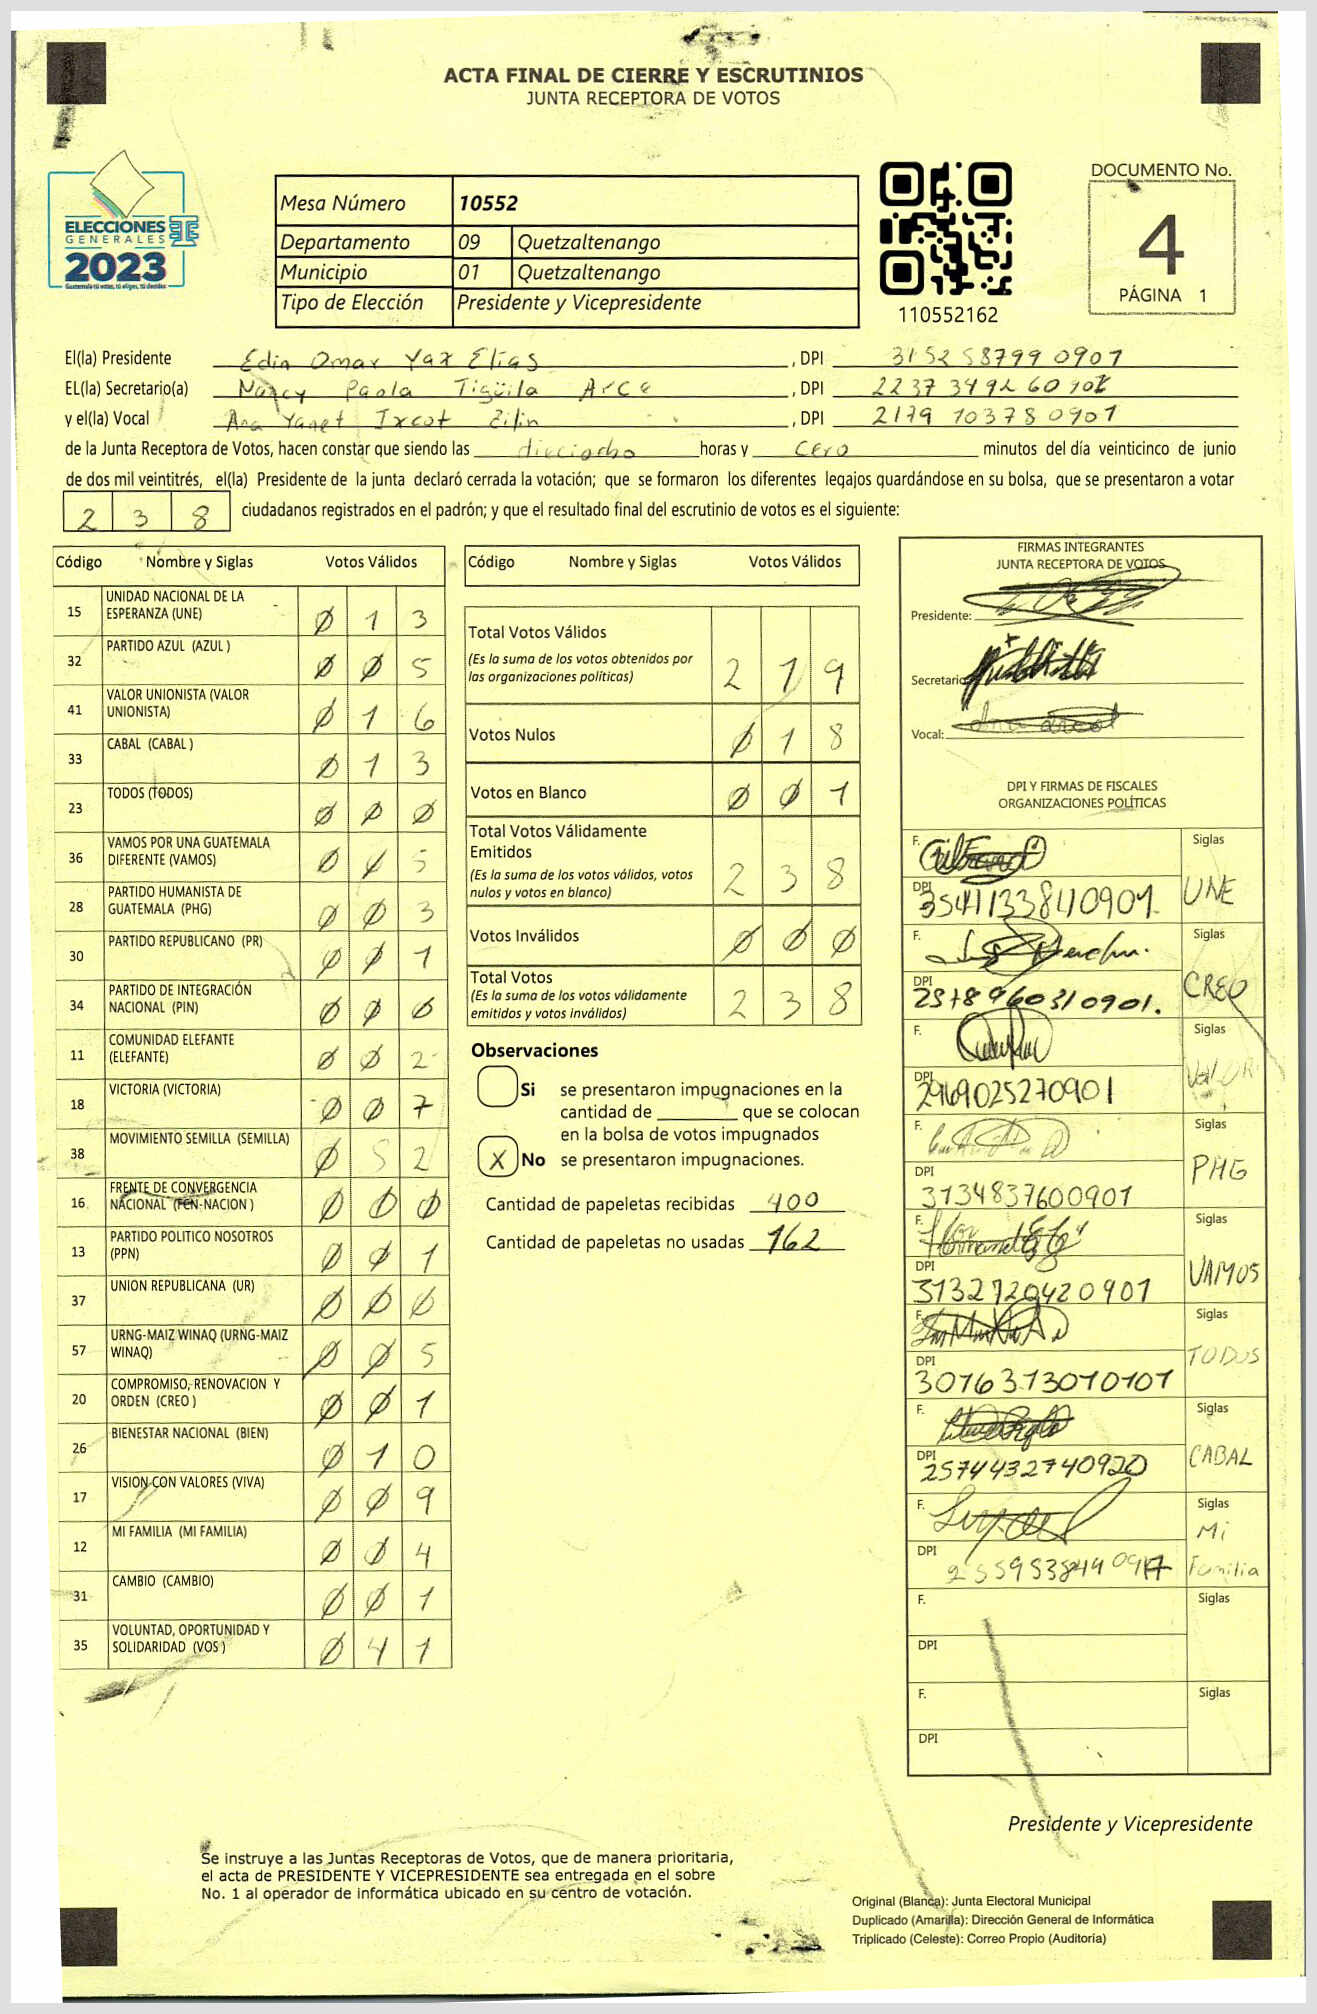 ACTA FINAL DE CIERRE Y ESCRUTINIOS
JUNTA RECEPTORA DE VOTOS
ELECCIONES
GENERALES
2023
Guatemala tú votas, tú eliges, tú decides
Mesa Número 10552
Departamento 09 Quetzaltenango
Municipio 01 Quetzaltenango
Tipo de Elección Presidente y Vicepresidente
110552162
DOCUMENTO No.
4
PÁGINA 1
El(la) Presidente Edin Omar Yax Elías , DPI 3152 58799 0901
EL(la) Secretario(a) Nancy Paola Tigüila Arce , DPI 2237 3492 60901
y el(la) Vocal Ana Yanet Ixcot Zilin , DPI 2179 103780901
de la Junta Receptora de Votos, hacen constar que siendo las dieciocho horas y cero minutos del día veinticinco de junio
de dos mil veintitrés, el(la) Presidente de la junta declaró cerrada la votación; que se formaron los diferentes legajos quardándose en su bolsa, que se presentaron a votar
2 3 8 ciudadanos registrados en el padrón; y que el resultado final del escrutinio de votos es el siguiente:
Código Nombre y Siglas Votos Válidos
15 UNIDAD NACIONAL DE LA ESPERANZA (UNE) 0 1 3
32 PARTIDO AZUL (AZUL ) 0 0 5
41 VALOR UNIONISTA (VALOR UNIONISTA) 0 1 6
33 CABAL (CABAL ) 0 1 3
23 TODOS (TODOS) 0 0 0
36 VAMOS POR UNA GUATEMALA DIFERENTE (VAMOS) 0 4 5
28 PARTIDO HUMANISTA DE GUATEMALA (PHG) 0 0 3
30 PARTIDO REPUBLICANO (PR) 0 0 1
34 PARTIDO DE INTEGRACIÓN NACIONAL (PIN) 0 0 0
11 COMUNIDAD ELEFANTE (ELEFANTE) 0 0 2
18 VICTORIA (VICTORIA) 0 0 7
38 MOVIMIENTO SEMILLA (SEMILLA) 0 5 2
16 FRENTE DE CONVERGENCIA NACIONAL (FCN-NACION ) 0 0 0
13 PARTIDO POLITICO NOSOTROS (PPN) 0 0 1
37 UNION REPUBLICANA (UR) 0 0 0
57 URNG-MAIZ WINAQ (URNG-MAIZ WINAQ) 0 0 5
20 COMPROMISO, RENOVACION Y ORDEN (CREO ) 0 0 1
26 BIENESTAR NACIONAL (BIEN) 0 1 0
17 VISION CON VALORES (VIVA) 0 0 9
12 MI FAMILIA (MI FAMILIA) 0 0 4
31 CAMBIO (CAMBIO) 0 0 1
35 VOLUNTAD, OPORTUNIDAD Y SOLIDARIDAD (VOS ) 0 4 1
Código Nombre y Siglas Votos Válidos
Total Votos Válidos 2 1 9
(Es la suma de los votos obtenidos por
las organizaciones políticas)
Votos Nulos 0 1 8
Votos en Blanco 0 0 1
Total Votos Válidamente
Emitidos 2 3 8
(Es la suma de los votos válidos, votos
nulos y votos en blanco)
Votos Inválidos 0 0 0
Total Votos 2 3 8
(Es la suma de los votos válidamente
emitidos y votos inválidos)
Observaciones
Si se presentaron impugnaciones en la
cantidad de ________ que se colocan
en la bolsa de votos impugnados
X No se presentaron impugnaciones.
Cantidad de papeletas recibidas 400
Cantidad de papeletas no usadas 162
FIRMAS INTEGRANTES
JUNTA RECEPTORA DE VOTOS
Presidente:
Secretario
Vocal:
DPI Y FIRMAS DE FISCALES
ORGANIZACIONES POLÍTICAS
F. Siglas
DPI 3541133840901 UNE
F. Siglas
DPI 2578960310901. CREO
F. Siglas
DPI 2969025270901 VALOR
F. Siglas
DPI 3134837600901 PHG
F. Siglas
DPI 3132720420901 VAMOS
F. Siglas
DPI 3016313010101 TODOS
F. Siglas
DPI 2574432740920 CABAL
F. Siglas
DPI Mi Familia
F. Siglas
DPI
F. Siglas
DPI
Presidente y Vicepresidente
Se instruye a las Juntas Receptoras de Votos, que de manera prioritaria,
el acta de PRESIDENTE Y VICEPRESIDENTE sea entregada en el sobre
No. 1 al operador de informática ubicado en su centro de votación.
Original (Blanca): Junta Electoral Municipal
Duplicado (Amarilla): Dirección General de Informática
Triplicado (Celeste): Correo Propio (Auditoría)